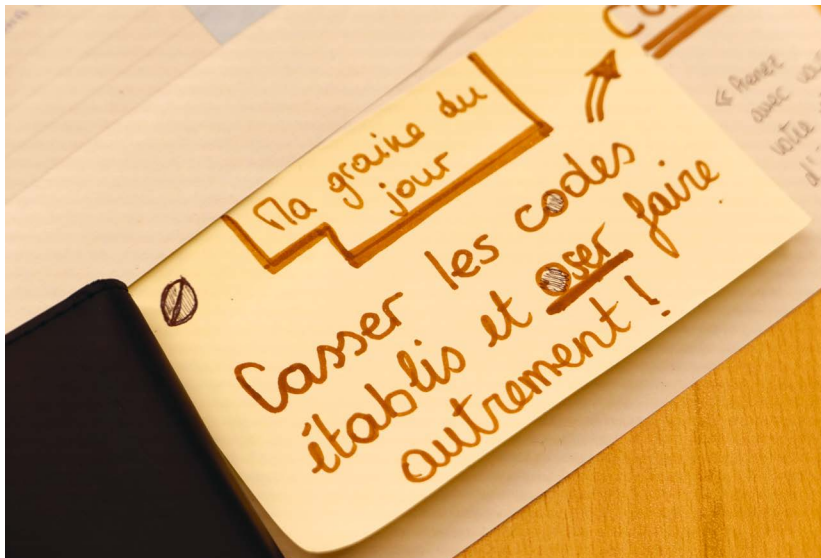 Ma graine du
jour
Casser les codes
établis et oser faire
autrement !
« Prenez
avec
votre
d'